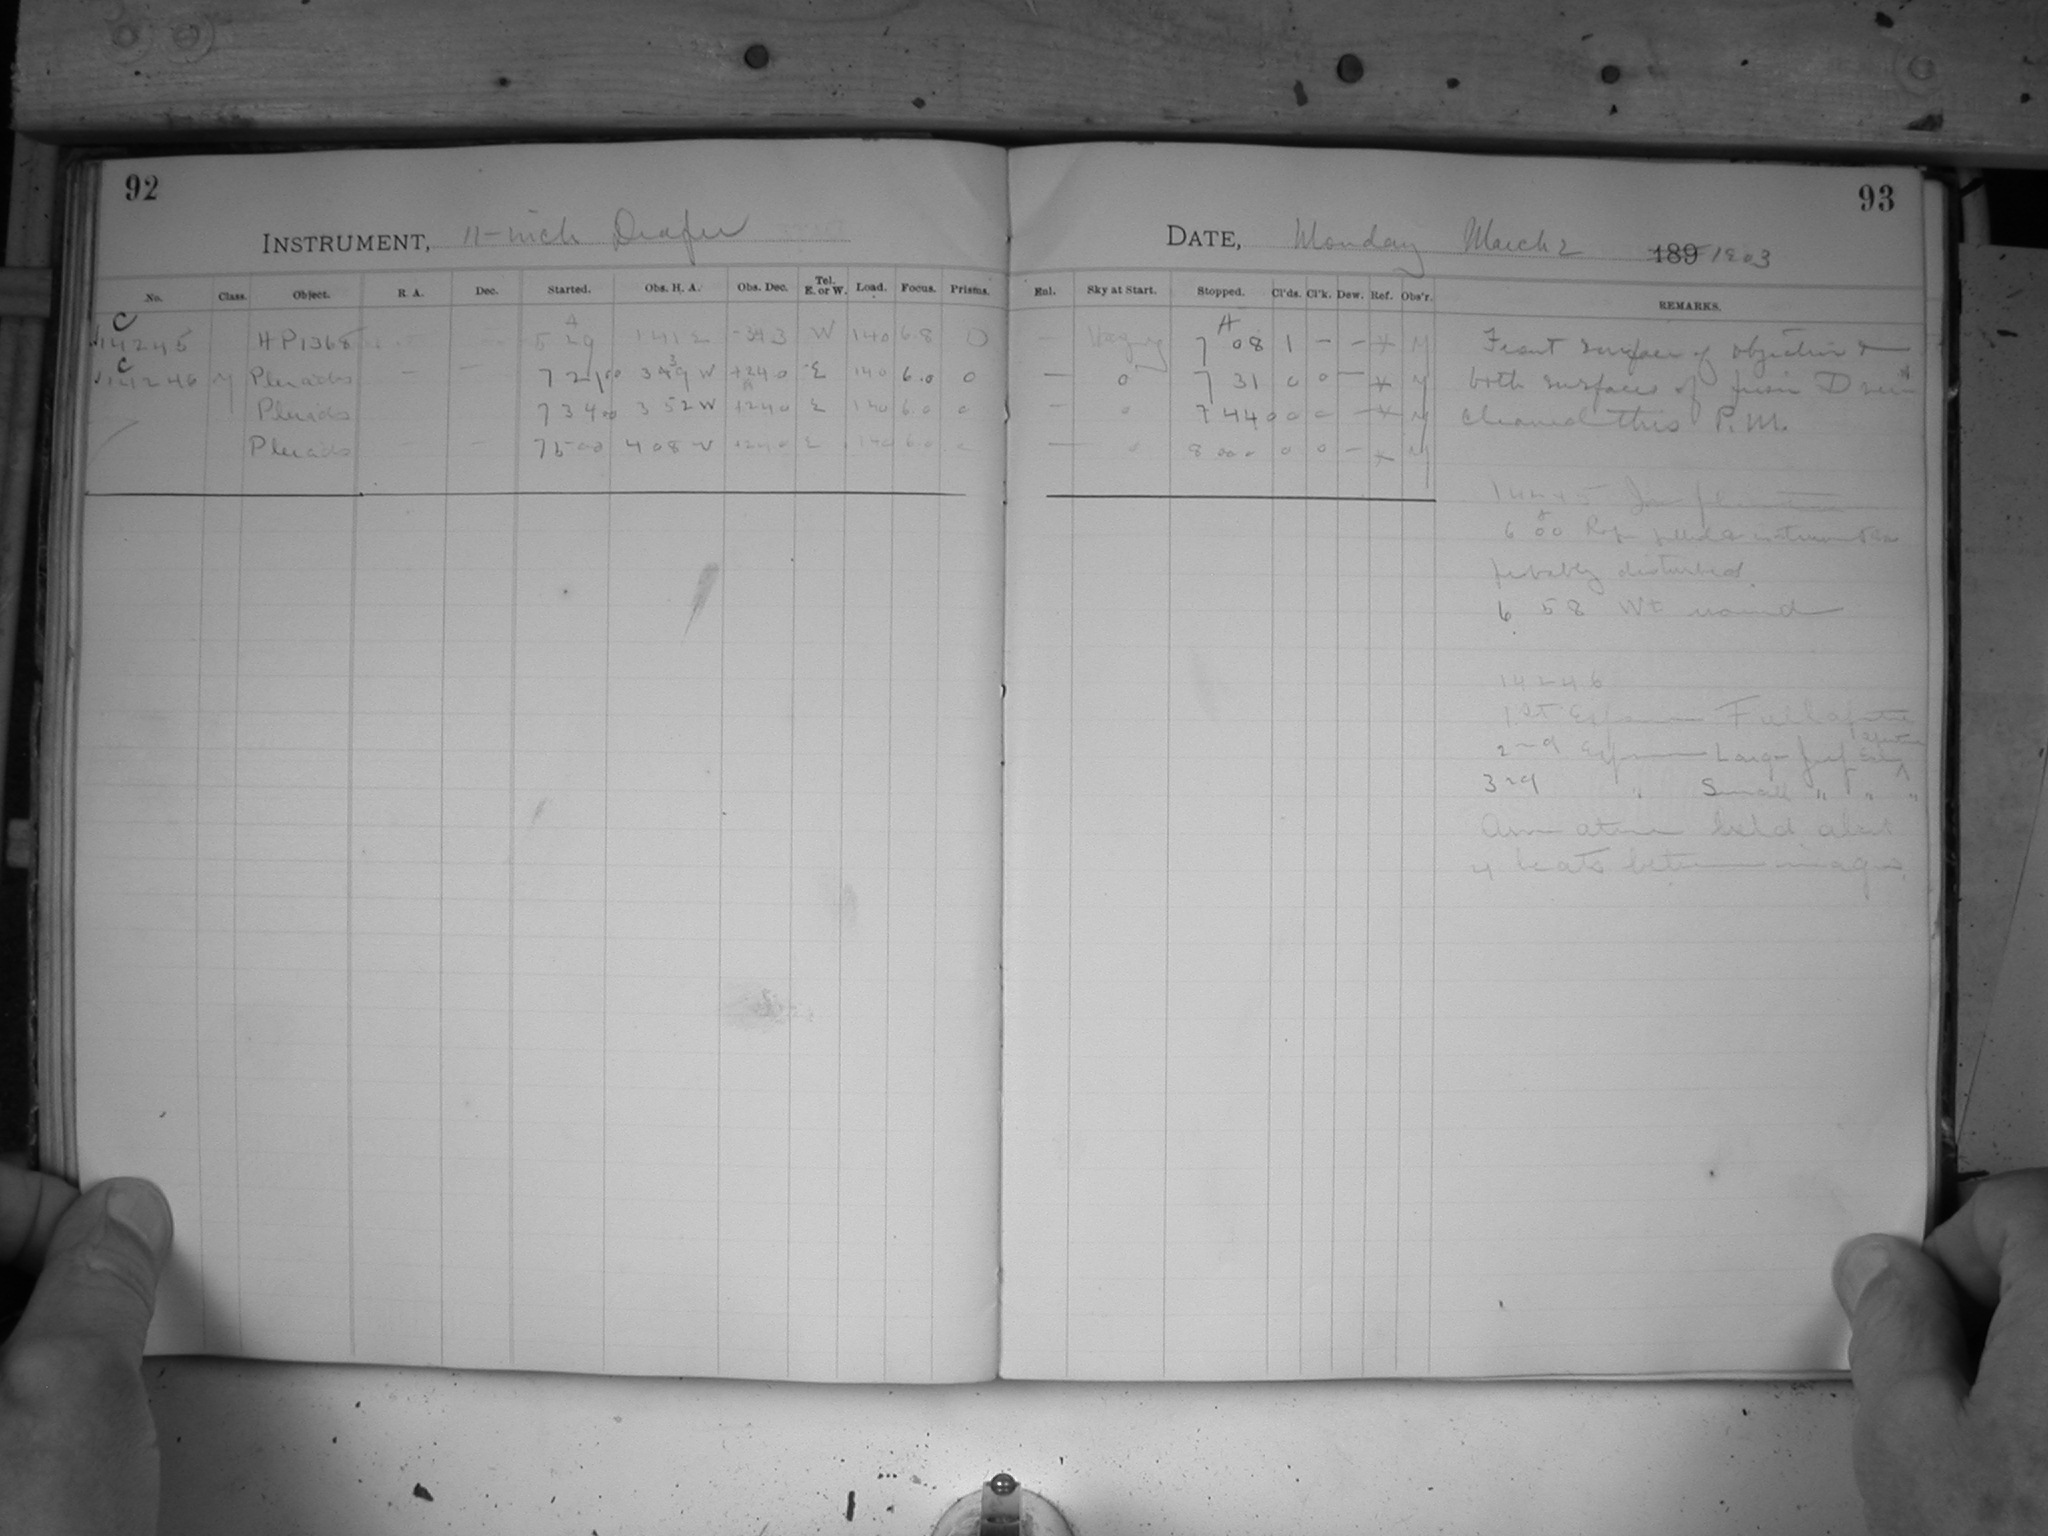 92
INSTRUMENT, 11-inch Draper
No. Class. Object. R. A. Dec. Started. Obs. H. A. Obs. Dec. Tel. E. or W. Load. Focus. Prisms.
C
14245 HP1368 5 29 1 41 E -39 3 W 140 6.8 D
C
14246 Pleiades — — 7 21 00 W +24 0 E 140 6.0 0
Pleiades 7 34 00 3 52 W +24 0 E 140 6.0 0
Pleiades — — 7 50 00 4 08 W +24 0 E 140 6.0 0
93
DATE, Monday March 2 189 1903
Enl. Sky at Start. Stopped. Cl'ds. Cl'k. Dew. Ref. Obs'r. REMARKS.
— 7 08 1 — — Front surface of objective &
— 0 7 31 0 0 — both surfaces of prism D
— 0 7 44 0 0 — cleaned this P.M.
— 0 8 00 0 0 0 —
14245
6 00 instrument
probably disturbed.
6 58 Wt wound
14246
1st Exposure Full aperture
2nd Exposure Large
3rd " Small " " "
held about
4 beats between images.